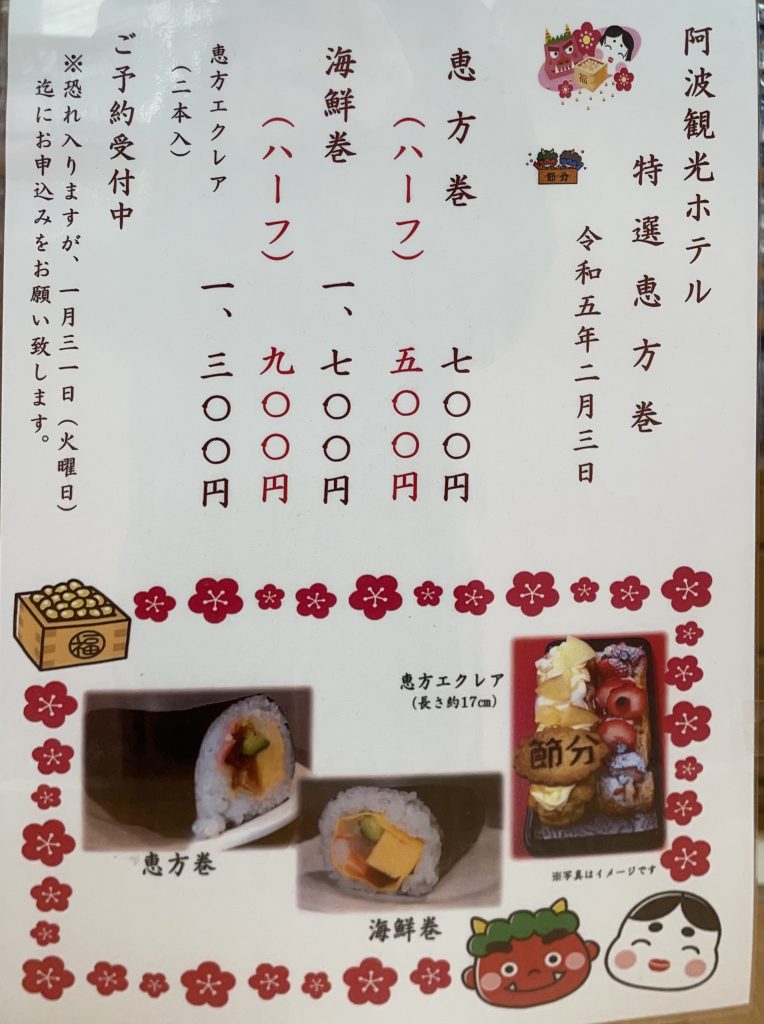 阿波観光ホテル
特選恵方巻
令和五年二月三日
恵方巻 七〇〇円
(ハーフ) 五〇〇円
海鮮巻 一、七〇〇円
(ハーフ) 九〇〇円
恵方エクレア 一、三〇〇円
(二本入)
ご予約受付中
※恐れ入りますが、一月三一日(火曜日)
迄にお申込みをお願い致します。
福
節分
福
恵方エクレア
(長さ約17㎝)
節分
恵方巻
海鮮巻
※写真はイメージです